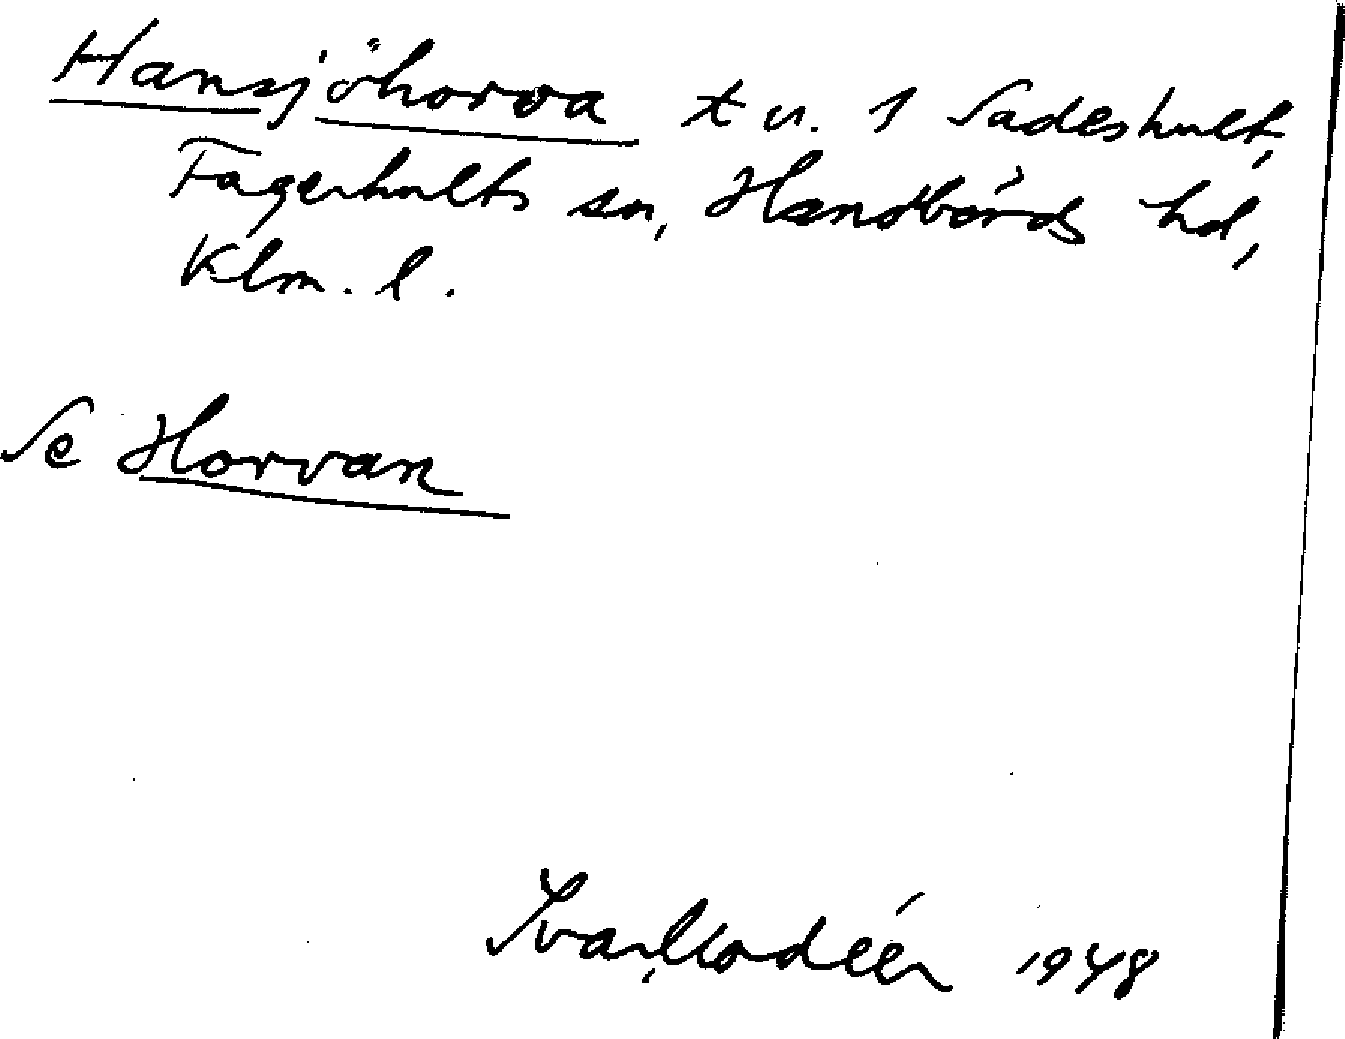 Hansjöhorva t u. 1 Sadeshult,
Fagerhults sn, Handbörds hd,
Klm. l.
Se Horvan
Ivar Modéer 1948